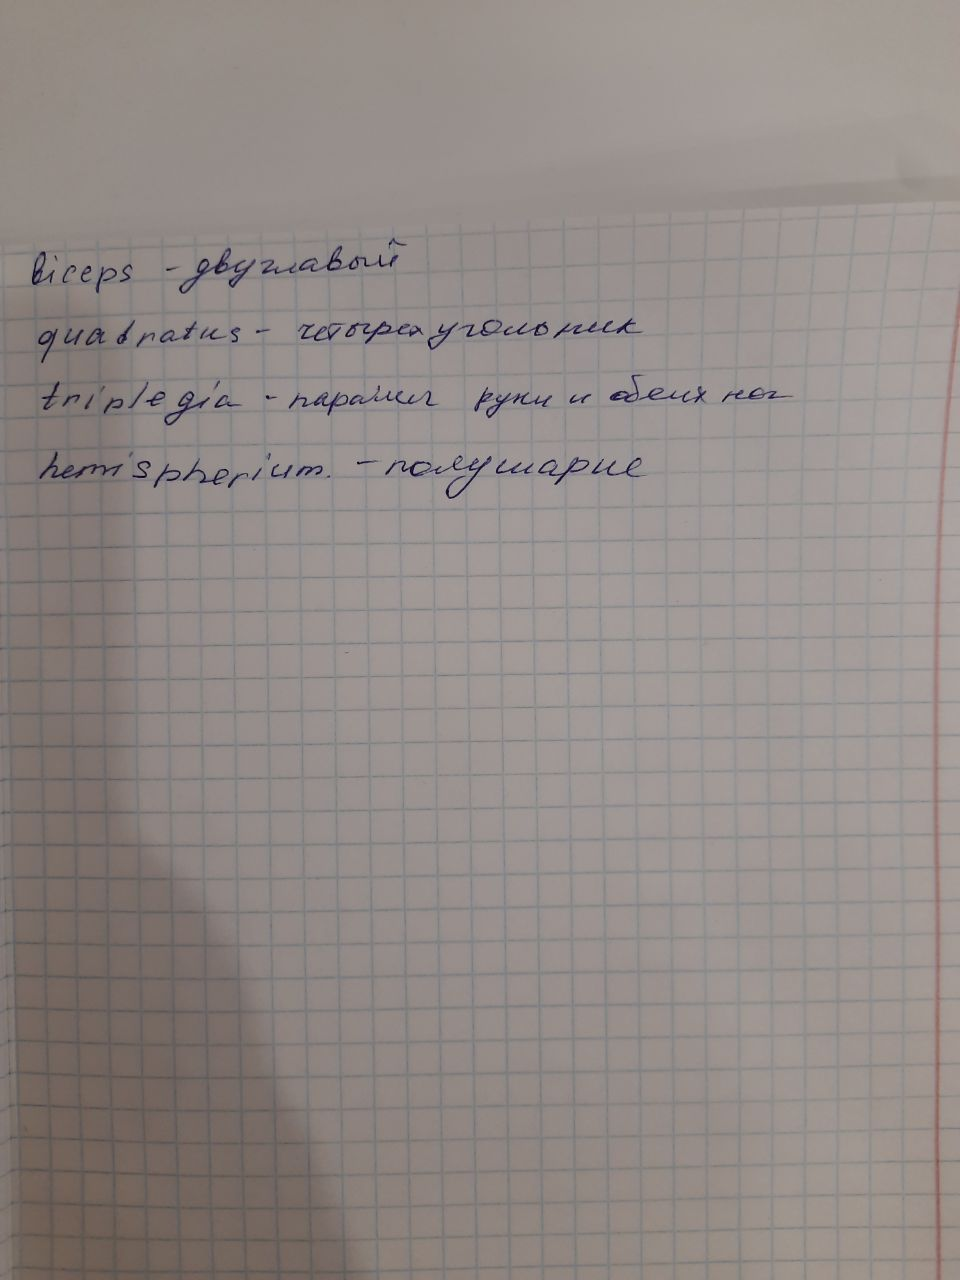 biceps - двуглавый
quadratus - четырехугольник
triplegia - паралич руки и обеих ног
hemispherium. - полушарие